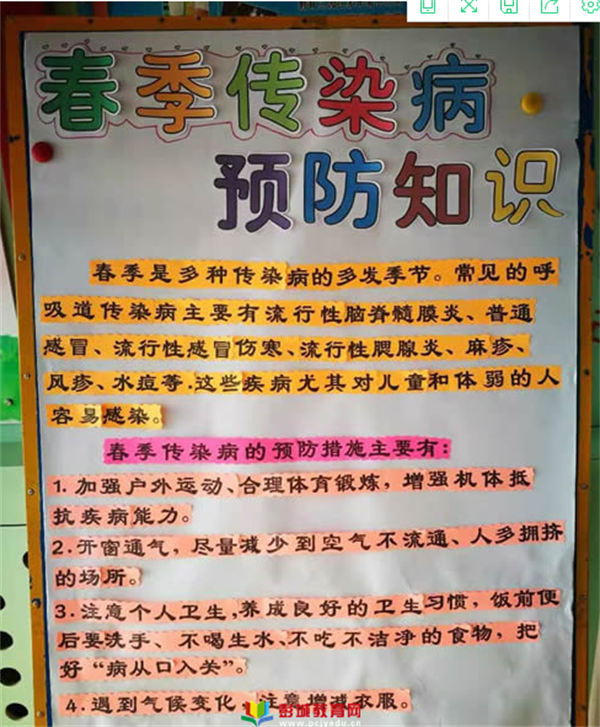 春季传染病
预防知识
春季是多种传染病的多发季节。常见的呼
吸道传染病主要有流行性脑脊髓膜炎、普通
感冒、流行性感冒伤寒、流行性腮腺炎、麻疹、
风疹、水痘等.这些疾病尤其对儿童和体弱的人
容易感染。
春季传染病的预防措施主要有:
1.加强户外运动、合理体育锻炼,增强机体抵
抗疾病能力。
2.开窗通气,尽量减少到空气不流通、人多拥挤
的场所。
3.注意个人卫生,养成良好的卫生习惯,饭前便
后要洗手、不喝生水、不吃不洁净的食物,把
好“病从口入关”。
4.遇到气候变化,注意增减衣服。
彭城教育网
www.pcjyedu.cn